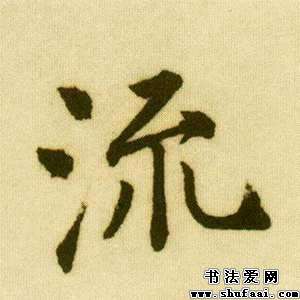 流
书法爱网
www.shufaai.com